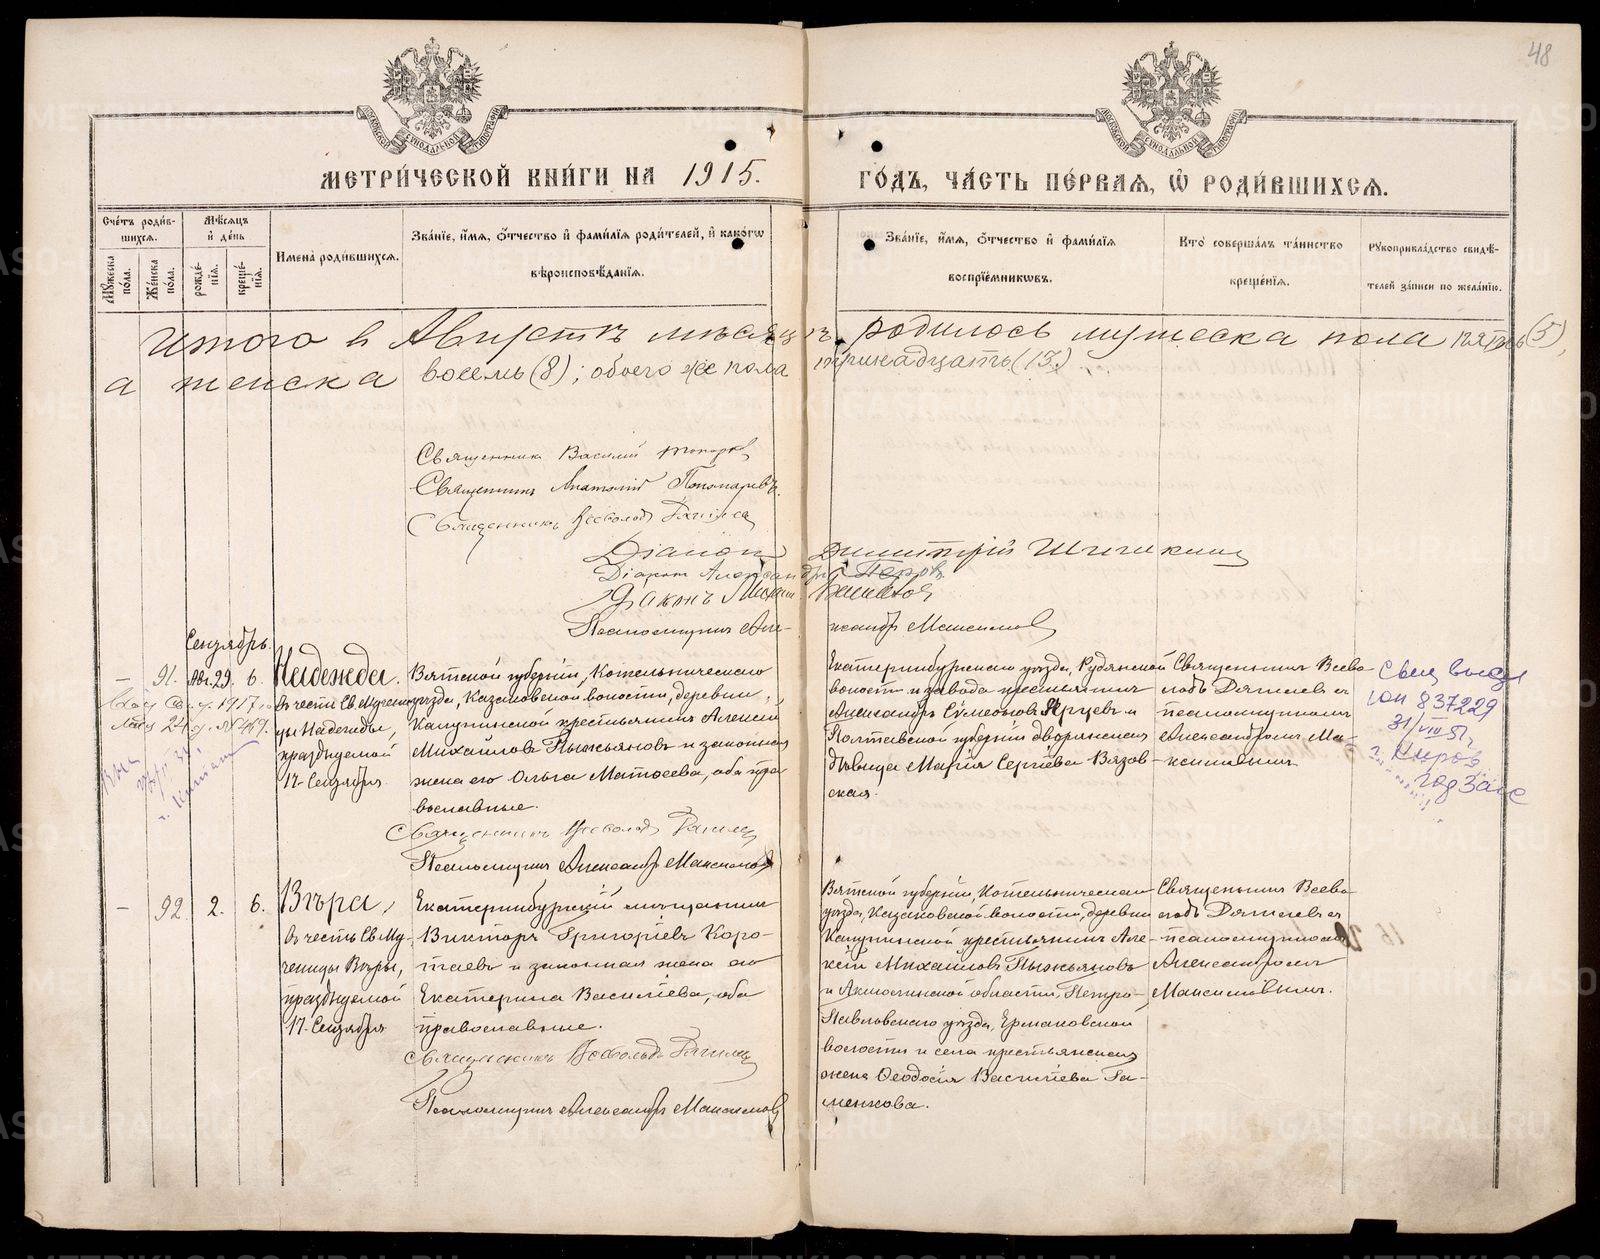 48
МЕТРИ́ЧЕСКОЙ КНИ́ГИ НА 1915.
ГО́ДЪ, ЧА́СТЬ ПЕ́РВАЯ, Ѽ РОДИ́ВШИХСЯ.
Сче́тъ роди́в-
шихся.
Му́жеска по́ла.
Же́нска по́ла.
Мѣ́сяцъ
и де́нь
рожде́-
нія.
креще́-
нія.
Имена̀ роди́вшихся.
Зва́ніе, и́мя, ѻ́тчество и фами́лія роди́телей, и како́гѡ
вѣроисповѣ́данія.
Зва́ніе, и́мя, ѻ́тчество и фами́лія
воспріе́мниковъ.
Кто̀ соверша́лъ та́инство
креще́нія.
Рукоприкла́дство свидѣ́-
телей за́писи по жела́нію.
Итого в Августѣ мѣсяцѣ родилось мужеска пола пять (5),
а женска восемь (8); обоего же пола тринадцать (13).
Священникъ Василий
Священникъ Анатолій Пономаревъ.
Священникъ Всеволодъ
Діаконъ Димитрій Шишкинъ
Діаконъ Александръ Перовъ
Діаконъ
Псаломщикъ Александръ Максимовъ
Сентябрь.
– 91. Авг. 29. 6.
Надежда.
въ честь Св. Мучени-
цы Надежды,
празднуемой
17 Сентября
Вятской губерніи, Котельническаго
уѣзда, Казаковской волости, деревни
крестьянинъ Алексій
Михайловъ Пыжьяновъ и законная
жена его Ольга Матѳеева, оба пра-
вославные.
Священникъ Всеволодъ
Псаломщикъ Александръ Максимовъ
Екатеринбургскаго уѣзда, Рудянской
волости и завода крестьянинъ
Александръ Сумеоновъ Ярцевъ и
Полтавской губерніи дворянская
дѣвица Марія Сергіева Вязов-
ская.
Священникъ Всево-
лодъ съ
псаломщикомъ
Александромъ Ма-
ксимовымъ.
837229
31/VIII 51 г.
г. Киров
гор Загс
– 92 2. 6.
Вѣра,
въ честь Св. Му-
ченицы Вѣры,
празднуемой
17 Сентября
Екатеринбургскій мѣщанинъ
Викторъ Григоріевъ Коро-
таевъ и законная жена его
Екатерина Василіева, оба
православные.
Священникъ Всеволодъ
Псаломщикъ Александръ Максимовъ
Вятской губерніи, Котельническаго
уѣзда, Казаковской волости, деревни
крестьянинъ Але-
ксій Михайловъ Пыжьяновъ
и Акмолинской области, Петро-
павловскаго уѣзда, Ермаковской
волости и села крестьянская
жена Ѳеодосія Василіева Га-
менкова.
Священникъ Всево-
лодъ съ
псаломщикомъ
Александромъ
Максимовымъ.